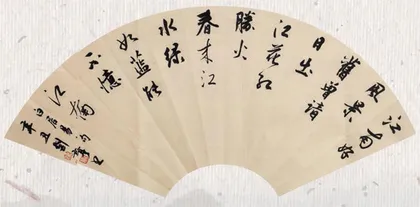 江南好
風景
舊曾諳
日出
江花紅
勝火
春来江
水緑
如藍能
不憶
江南
白居易句
辛丑劉